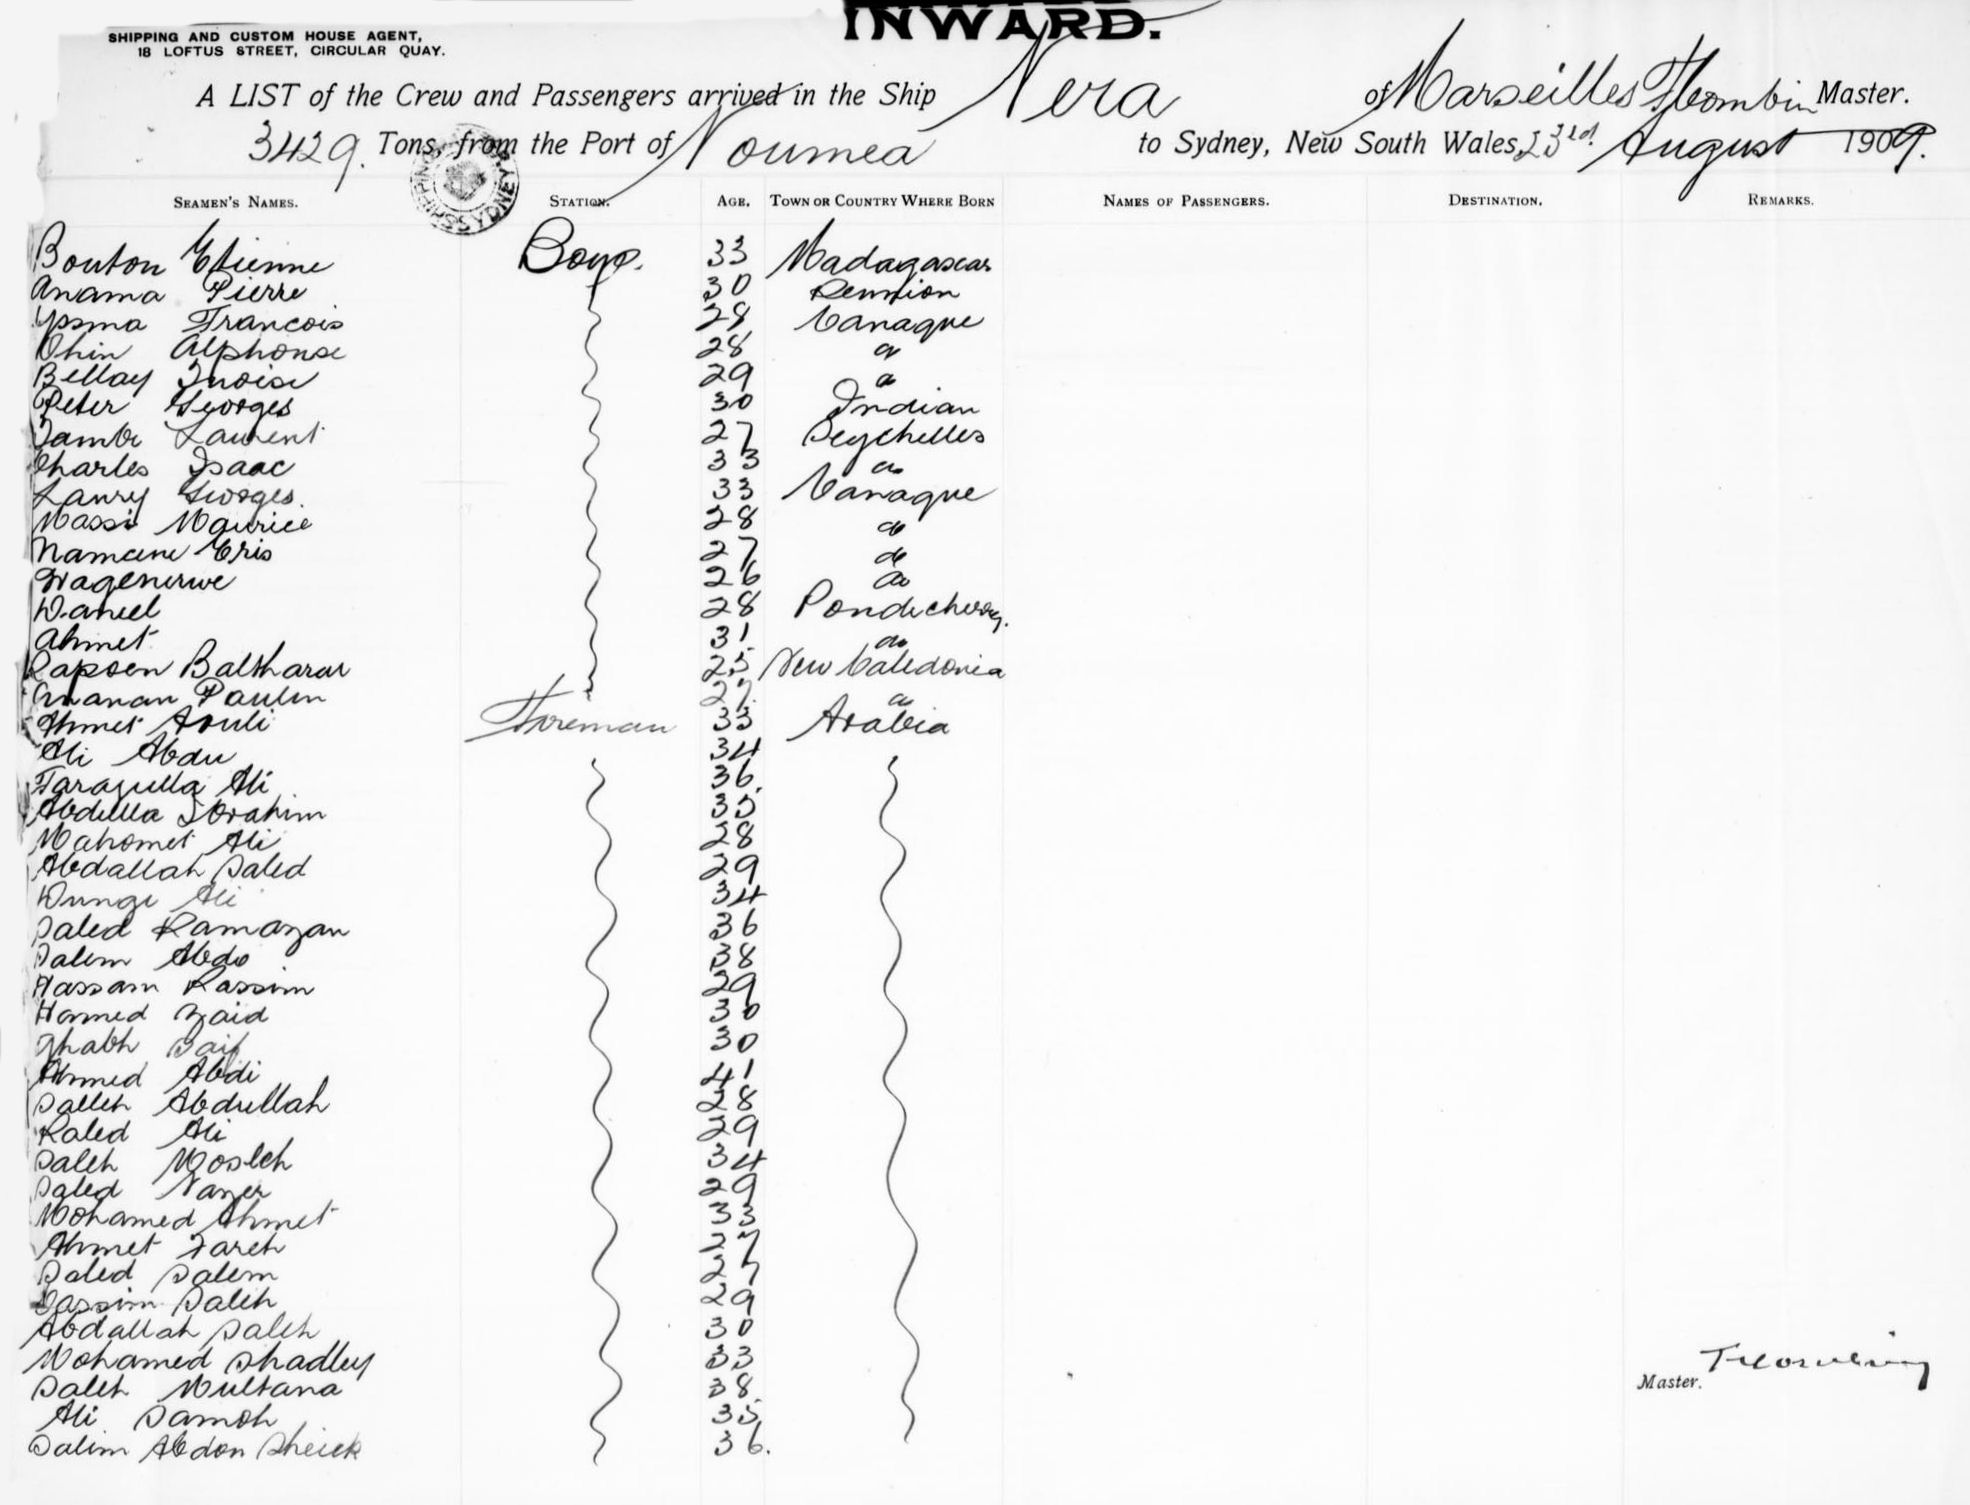 INWARD.
SHIPPING AND CUSTOM HOUSE AGENT,
18 LOFTUS STREET, CIRCULAR QUAY.
A LIST of the Crew and Passengers arrived in the Ship Nera of Marseilles Master.
3429. Tons, from the Port of Noumea to Sydney, New South Wales, 23rd. August 1909.
SEAMEN'S NAMES. STATION. AGE. TOWN OR COUNTRY WHERE BORN NAMES OF PASSENGERS. DESTINATION. REMARKS.
Bouton Etienne Boys. 33 Madagascar
Anama Pierre 30 Reunion
Ypsma Francois 28 Canaque
Ohin Alphonse 28 "
Bellay 29 "
Peter Georges 30 Indian
Laurent 27 Seychelles
Charles Isaac 33 "
Laury Georges. 33 Canaque
Massi Maurice 28 "
Namcene Eris 27 "
Wagenerwe 26 "
Daniel 28 Pondichery.
Ahmet 31 "
Rapoen Baltharar 25 New Caledonia
Ananan Paulin 27. "
Ahmet Aouli Fireman 33 Arabia
Ali Abdu 34
Farazulla Ali 36.
Abdulla Ibrahim 35
Mahomet Ali 28
Abdallah Saled 29
Dungi Ali 34
Saled Ramazan 36
Salem Abdo 38
Hassam Kassim 29
Hamed Zaid 30
Ghabh Saif 30
Ahmed Abdi 41
Salleh Abdullah 28
Kaled Ali 29
Saleh Mosleh 34
Saled Nazer 29
Mohamed Ahmet 33
Ahmet Fareh 27
Saled Salem 27
Gassim Saleh 29
Abdallah Saleh 30
Mohamed Shadley 33
Saleh Multana 38.
Ali Samoh 35
Salim Abdon Sheick 36.
Master.